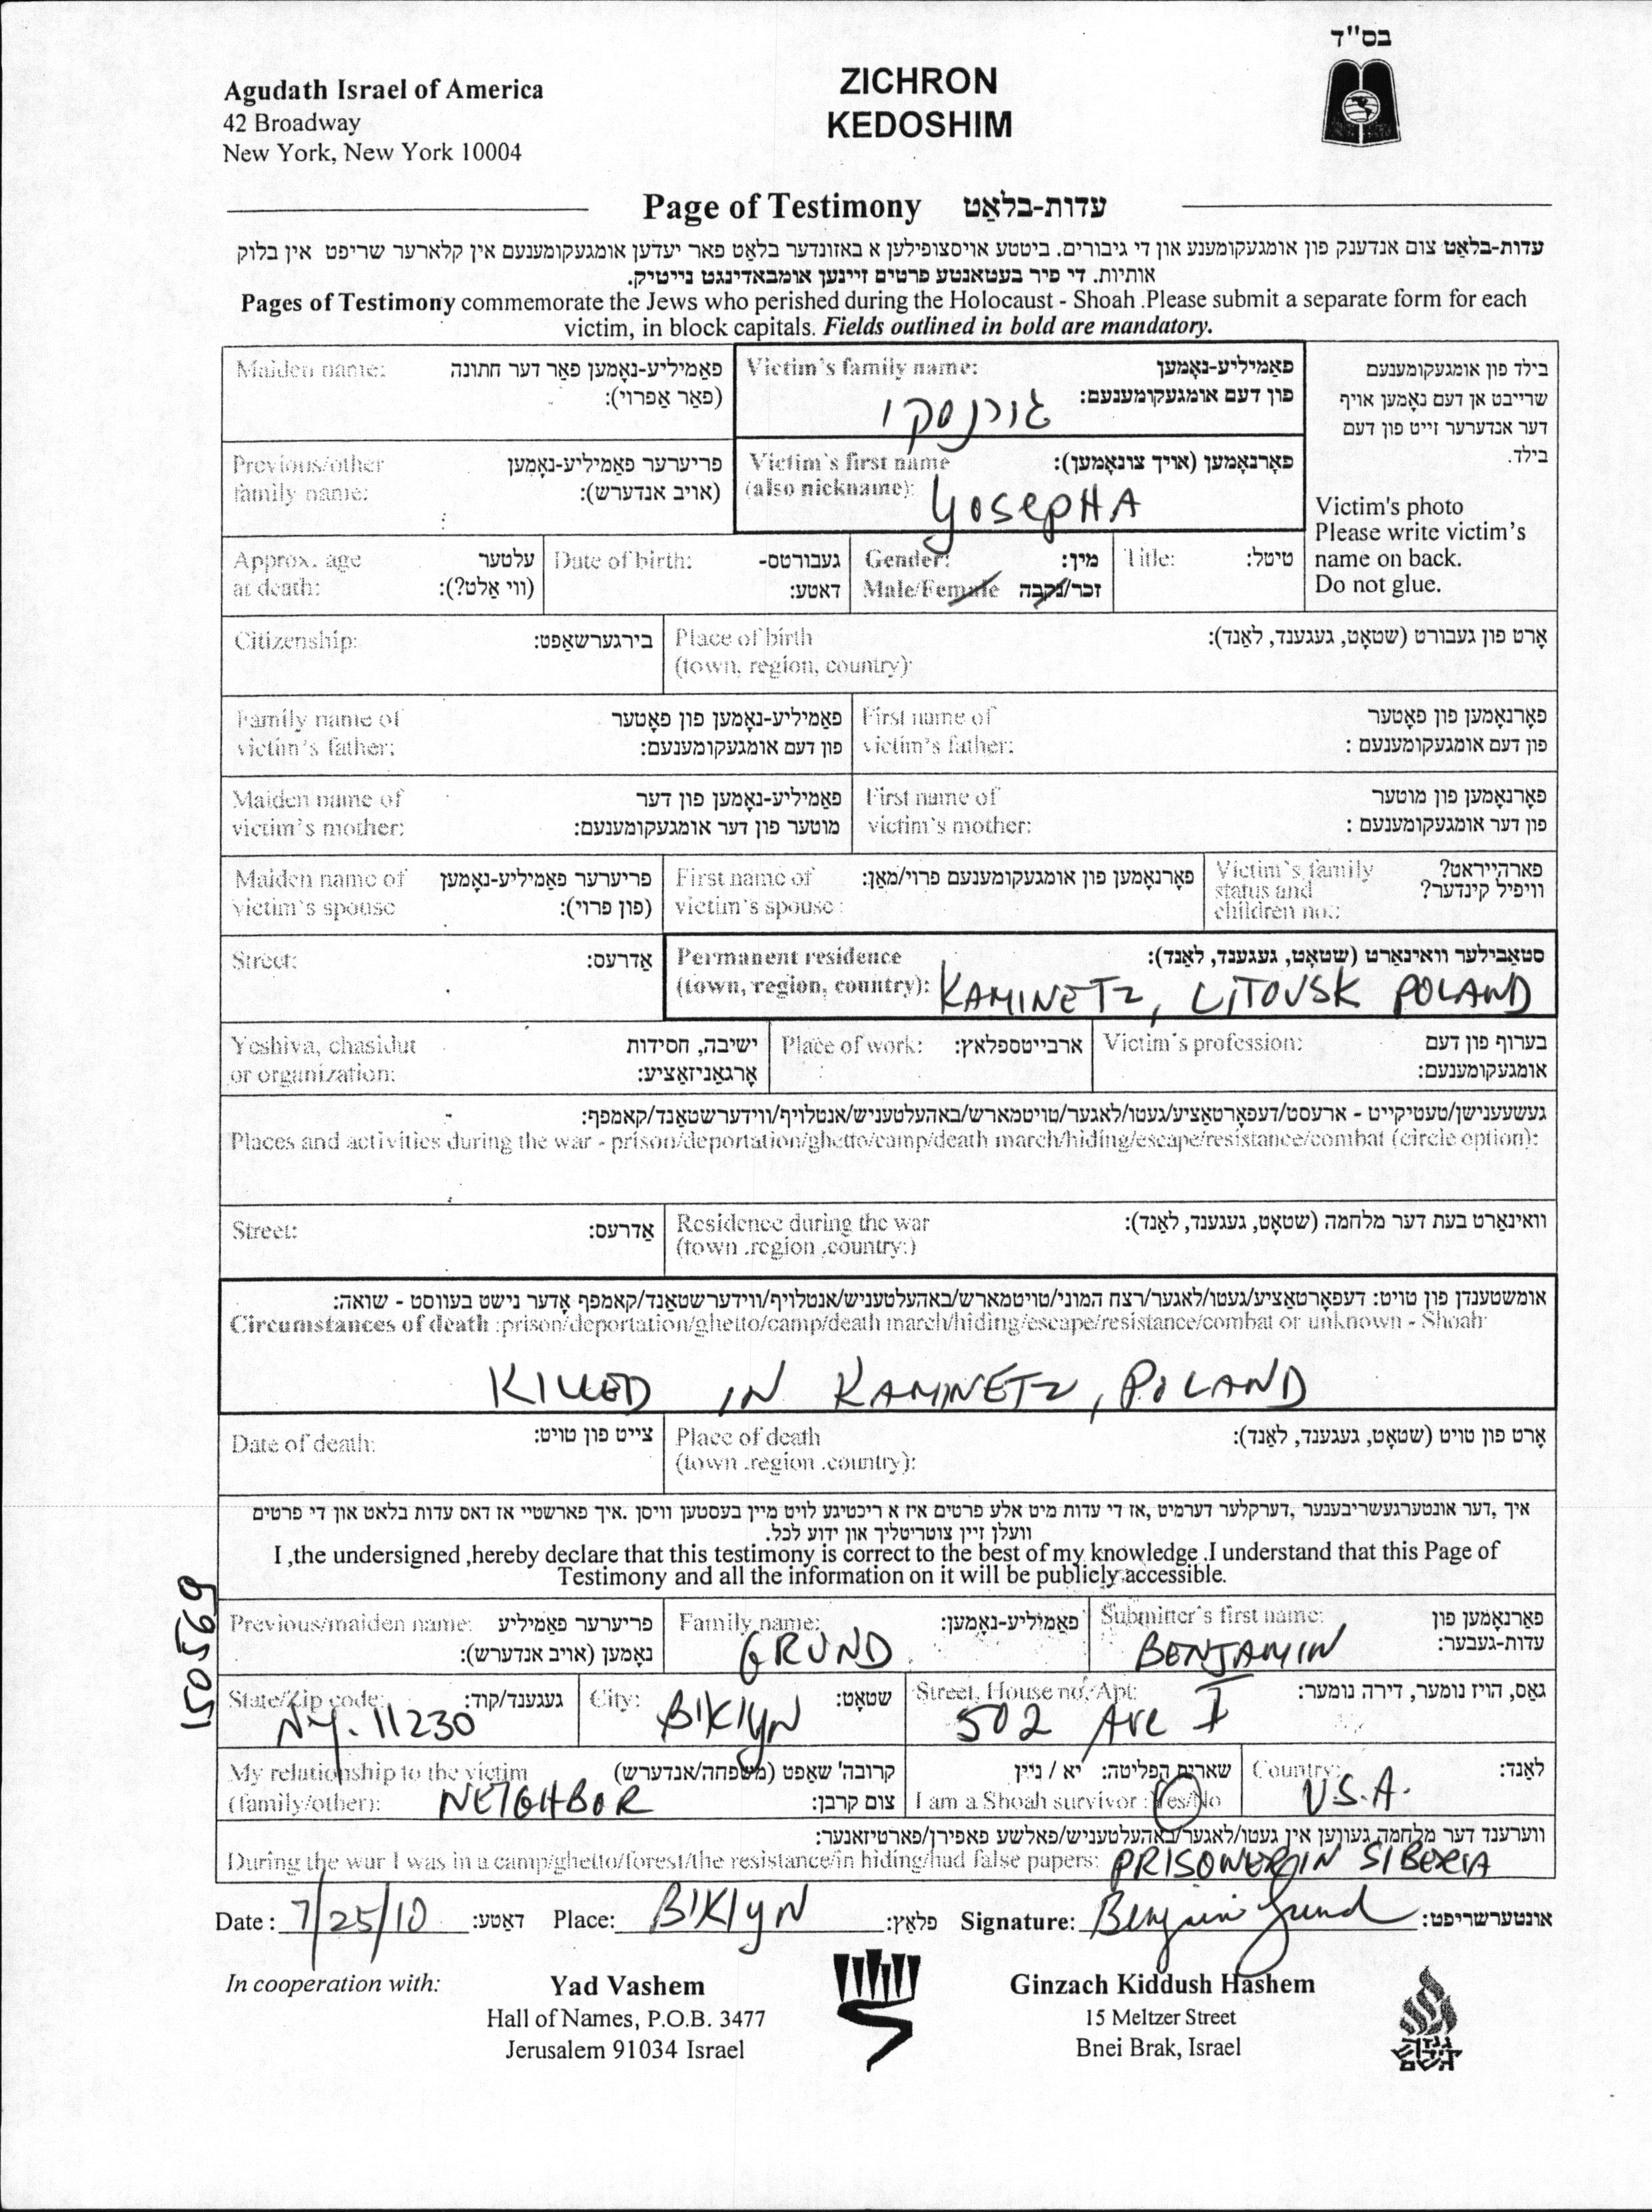 בס"ד
Agudath Israel of America
42 Broadway
New York, New York 10004
ZICHRON
KEDOSHIM
Page of Testimony עדות-בלאַט
עדות-בלאַט צום אנדענק פון אומגעקומענע און די גיבורים. ביטטע אויסצופילען א באזונדער בלאַט פאר יעדען אומגעקומענעם אין קלארער שריפט אין בלוק
אותיות. די פיר בעטאנטע פרטים זיינען אומבאדינגט נייטיק.
Pages of Testimony commemorate the Jews who perished during the Holocaust - Shoah .Please submit a separate form for each
victim, in block capitals. Fields outlined in bold are mandatory.
Maiden name: פאַמיליע-נאָמען פאַר דער חתונה
(פאַר אַפרוי):
Victim's family name: פאַמיליע-נאָמען
פון דעם אומגעקומענעם:
גורנסקי
Previous/other פריערער פאַמיליע-נאָמען
family name: (אויב אנדערש):
Victim's first name פאָרנאָמען (אויך צונאָמען):
(also nickname): YosepHA
בילד פון אומגעקומענעם
שרייבט אן דעם נאָמען אויף
דער אנדערער זייט פון דעם
בילד.
Victim's photo
Please write victim's
name on back.
Do not glue.
Approx. age עלטער
at death: (ווי אַלט?):
Date of birth: געבורטס-
דאטע:
Gender: מין:
Male/Female זכר/נקבה
Title: טיטל:
Citizenship: בירגערשאַפט:
Place of birth אָרט פון געבורט (שטאָט, געגענד, לאַנד):
(town, region, country):
Family name of פאַמיליע-נאָמען פון פאָטער
victim's father: פון דעם אומגעקומענעם:
First name of פאָרנאָמען פון פאָטער
victim's father: פון דעם אומגעקומענעם :
Maiden name of פאַמיליע-נאָמען פון דער
victim's mother: מוטער פון דער אומגעקומענעם:
First name of פאָרנאָמען פון מוטער
victim's mother: פון דער אומגעקומענעם :
Maiden name of פריערער פאַמיליע-נאָמען
victim's spouse (פון פרוי):
First name of פאָרנאָמען פון אומגעקומענעם פרוי/מאַן:
victim's spouse :
Victim's family פארהייראט?
status and וויפיל קינדער?
children no.:
Street: אַדרעס:
Permanent residence סטאַבילער וואינארט (שטאָט, געגענד, לאַנד):
(town, region, country): KAMINETZ, LITOVSK POLAND
Yeshiva, chasidut ישיבה, חסידות
or organization: אָרגאַניזאַציע:
Place of work: ארבייטספלאץ:
Victim's profession: בערוף פון דעם
אומגעקומענעם:
געשעענישן/טעטיקייט - ארעסט/דעפאָרטאַציע/געטו/לאגער/טויטמארש/באהעלטעניש/אנטלויף/ווידערשטאַנד/קאמפף:
Places and activities during the war - prison/deportation/ghetto/camp/death march/hiding/escape/resistance/combat (circle option):
Street: אַדרעס:
Residence during the war וואינארט בעת דער מלחמה (שטאָט, געגענד, לאַנד):
(town .region .country:)
אומשטענדן פון טויט: דעפאָרטאַציע/געטו/לאגער/רצח המוני/טויטמארש/באהעלטעניש/אנטלויף/ווידערשטאַנד/קאמפף אָדער נישט בעווסט - שואה:
Circumstances of death :prison/deportation/ghetto/camp/death march/hiding/escape/resistance/combat or unknown - Shoah:
KILLED IN KAMINETZ, POLAND
Date of death: צייט פון טויט:
Place of death אָרט פון טויט (שטאָט, געגענד, לאַנד):
(town .region .country):
איך ,דער אונטערגעשריבענער ,דערקלער דערמיט ,אז די עדות מיט אלע פרטים איז א ריכטיגע לויט מיין בעסטען וויסן .איך פארשטיי אז דאס עדות בלאט און די פרטים
וועלן זיין צוטריטליך און ידוע לכל.
I ,the undersigned ,hereby declare that this testimony is correct to the best of my knowledge .I understand that this Page of
Testimony and all the information on it will be publicly accessible.
150569
Previous/maiden name: פריערער פאַמיליע
נאָמען (אויב אנדערש):
Family name: פאַמיליע-נאָמען:
GRUND
Submitter's first name: פאָרנאָמען פון
עדות-געבער:
BENJAMIN
State/Zip code: געגענד/קוד:
N.Y. 11230
City: שטאָט:
B'Klyn
Street, House no./Apt: גאַס, הויז נומער, דירה נומער:
502 Ave I
My relationship to the victim קרובה' שאַפט (משפחה/אנדערש)
(family/other): NEIGHBOR צום קרבן:
שארית הפליטה: יא / ניין
I am a Shoah survivor :Yes/No
Country: לאַנד:
U.S.A.
ווערענד דער מלחמה געווען אין געטו/לאגער/באהעלטעניש/פאלשע פאפירן/פארטיזאנער:
During the war I was in a camp/ghetto/forest/the resistance/in hiding/had false papers: PRISONER IN SIBERIA
Date : 7/25/10 דאַטע: Place: B'Klyn פלאַץ: Signature: Benjamin Grund אונטערשריפט:
In cooperation with:
Yad Vashem
Hall of Names, P.O.B. 3477
Jerusalem 91034 Israel
Ginzach Kiddush Hashem
15 Meltzer Street
Bnei Brak, Israel
גנזך
קידוש
השם